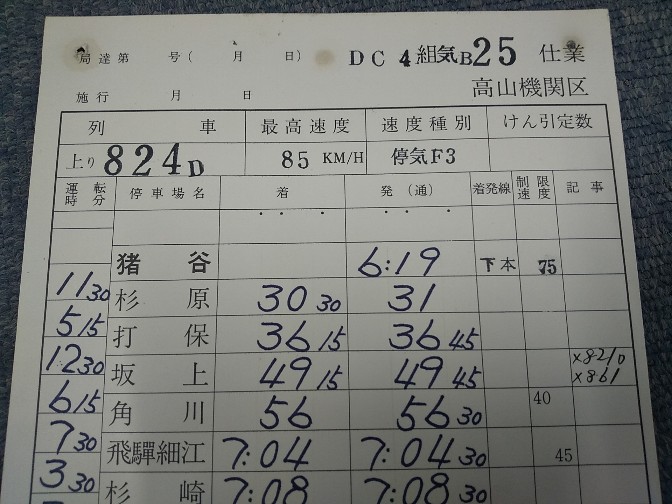 局達第 号(月 日) DC 4組気B25 仕業
施行 月 日 高山機関区
列車 最高速度 速度種別 けん引定数
上り824D 85 KM/H 停気F3
運転時分 停車場名 着 発(通) 着発線 制限速度 記事
猪谷 6:19 下本 75
11 30 杉原 30 30 31
5 15 打保 36 15 36 45
12 30 坂上 49 15 49 45 ×821D ×861
6 15 角川 56 56 30 40
7 30 飛驒細江 7:04 7:04 30 45
3 30 杉崎 7:08 7:08 30